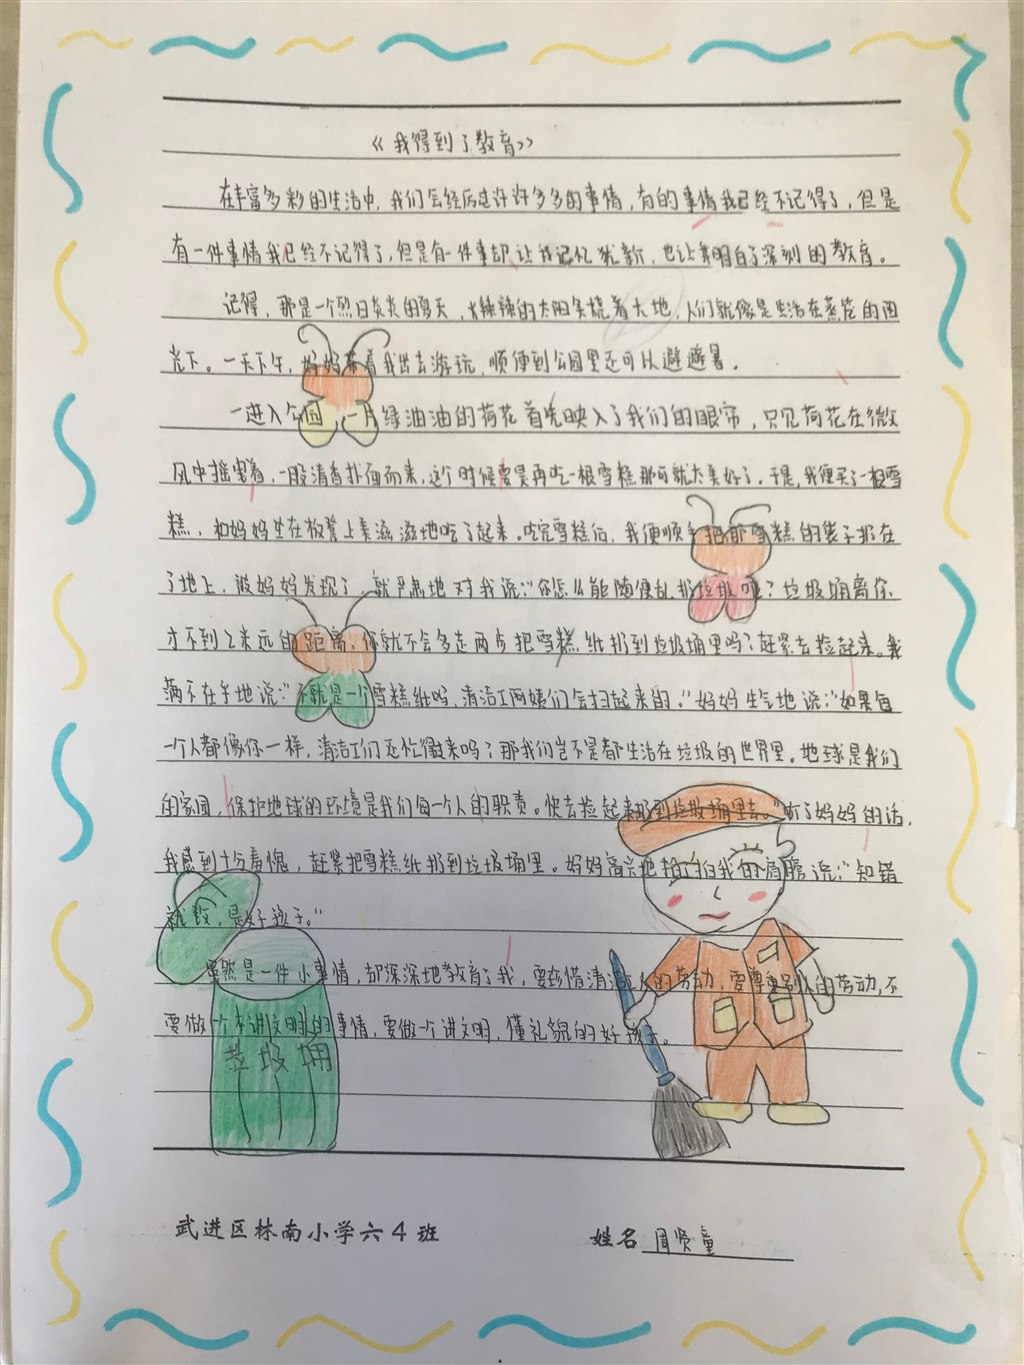 《我得到了教育》
在丰富多彩的生活中,我们会经历过许许多多的事情,有的事情我已经不记得了,但是
有一件事情我已经不记得了,但是有一件事却让我记忆犹新,也让我明白了深刻的教育。
记得,那是一个烈日炎炎的夏天,火辣辣的太阳炙烧着大地,人们就像是生活在蒸笼的困
览下。一天下午,妈妈带着我出去游玩,顺便到公园里还可以避避暑。
一进入公园,一片绿油油的荷花首先映入了我们的眼帘,只见荷花在微
风中摇曳着,一股清香扑面而来,这个时候要是再吃一根雪糕那可就太美好了。于是,我便买了一根雪
糕,和妈妈坐在板凳上美滋滋地吃了起来。吃完雪糕后,我便顺手把那雪糕的袋子扔在
了地上,被妈妈发现了,就严肃地对我说:“你怎么能随便乱扔垃圾呢?垃圾桶离你
才不到2米远的距离,你就不会多走两步把雪糕纸扔到垃圾桶里吗?赶紧去捡起来。我
满不在乎地说:“不就是一个雪糕纸吗,清洁工阿姨们会扫起来的。”妈妈生气地说:“如果每
一个人都像你一样,清洁工们还忙得过来吗?那我们岂不是都生活在垃圾的世界里。地球是我们
的家园,保护地球的环境是我们每一个人的职责。快去捡起来扔到垃圾桶里去。”听了妈妈的话,
我感到十分羞愧,赶紧把雪糕纸扔到垃圾桶里。妈妈高兴地拍了拍我的肩膀说:“知错
就改,是好孩子。”
虽然是一件小事情,却深深地教育了我,要珍惜清洁工人的劳动,要尊重别人的劳动,不
要做一个不讲文明的事情,要做一个讲文明,懂礼貌的好孩子。
垃圾桶
武进区林南小学六4班
姓名 周贤童